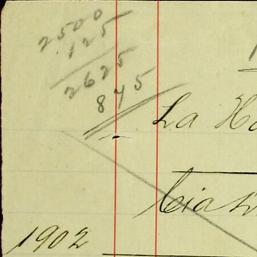 2500
125
2625
845
La Ha
Cia
1902